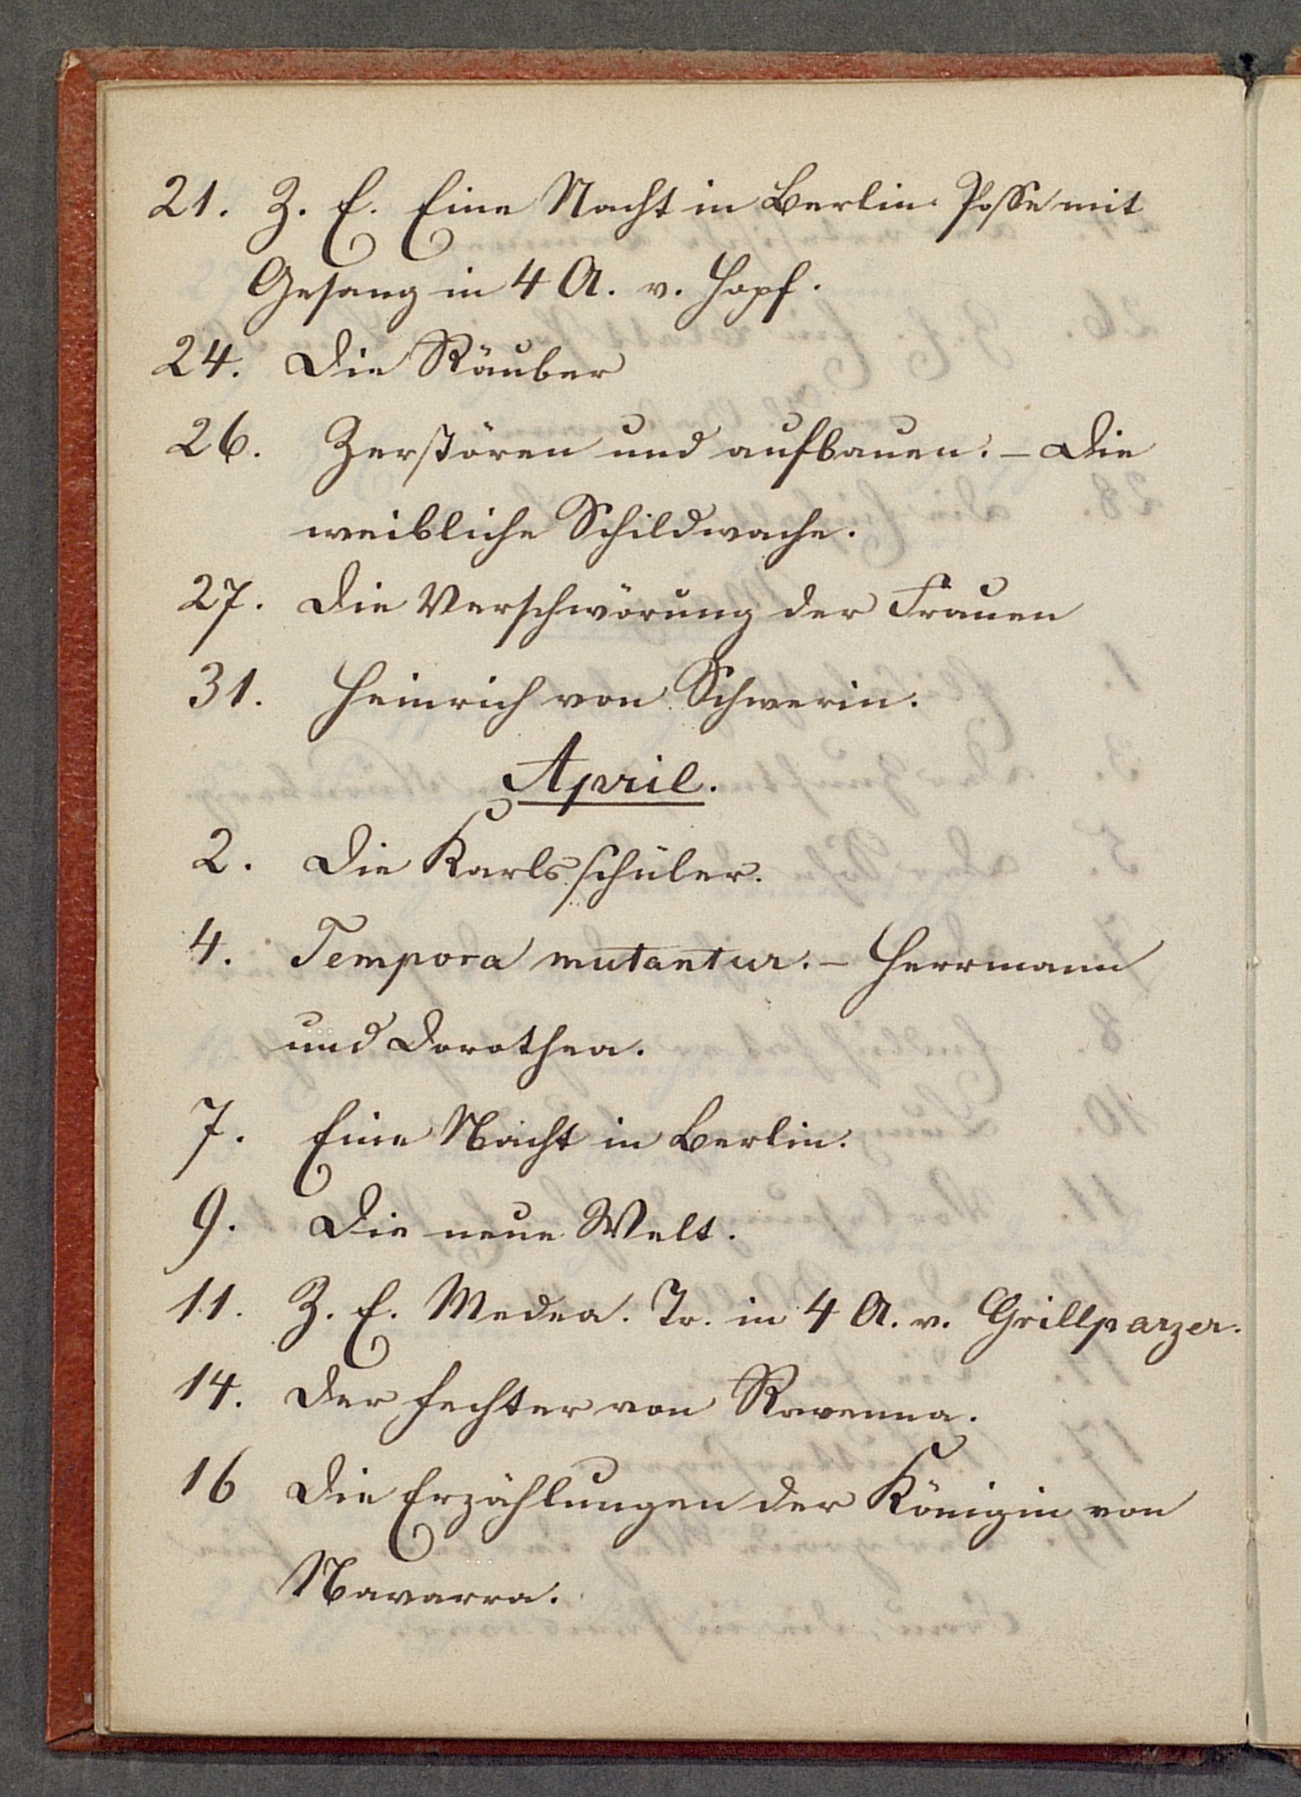 21. Z. E. Eine Nacht in Berlin. Posse mit
Gesang in 4 A. v. Hopf.
24. Die Räuber
26. Zerstören und aufbauen. – Die
weibliche Schildwache.
27. Die Verschwörung der Frauen
31. Heinrich von Schwerin.
April.
2. Die Karlsschüler.
4. Tempora mutantur. – Herrmann
und Dorothea.
7. Eine Nacht in Berlin.
9. Die neue Welt.
11. Z. E. Medea. Tr. in 4 A. v. Grillparzer.
14. Der Fechter von Ravenna.
16 Die Erzählungen der Königin von
Navarra.